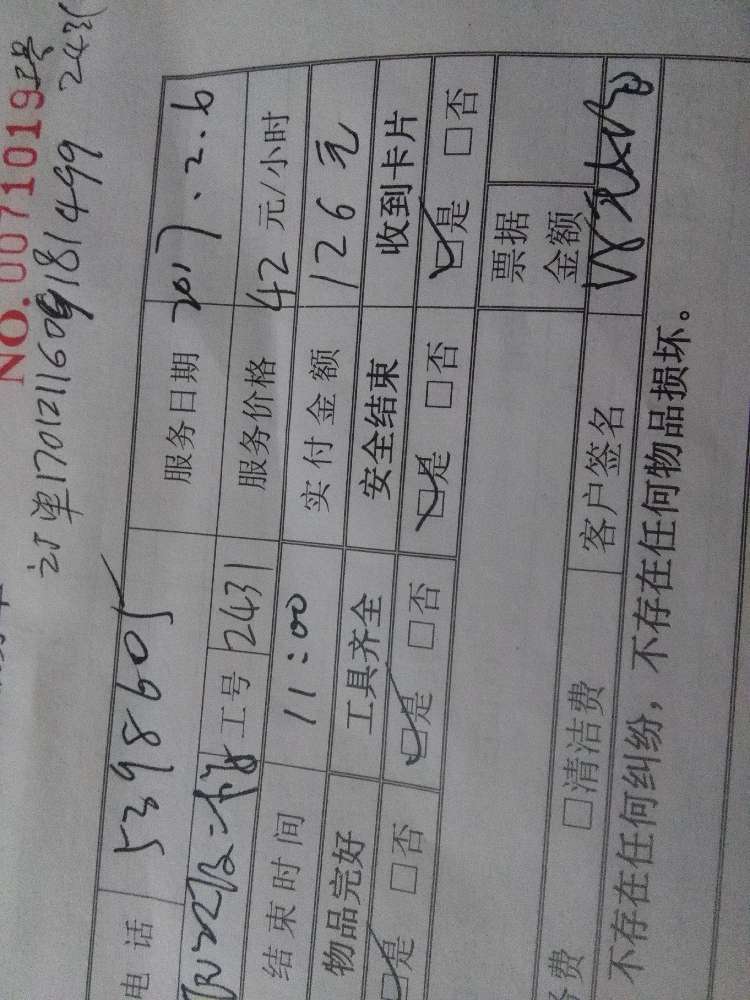 NO.0071019 工号 2431
订单1701211609181499
电话 5398605 服务日期 2017.2.6
工号 2431 服务价格 42 元/小时
结束时间 11:00 实付金额 126元
物品完好 工具齐全 安全结束 收到卡片
☑是 □否 ☑是 □否 ☑是 □否 ☑是 □否
票据金额
费 □清洁费 客户签名
不存在任何纠纷，不存在任何物品损坏。